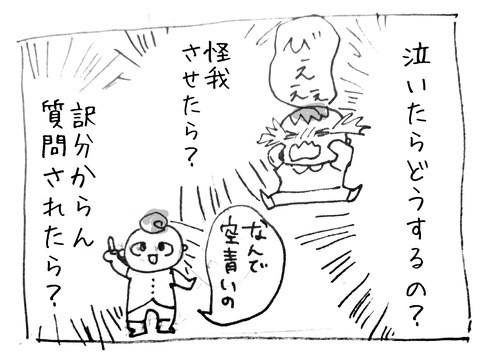 泣いたらどうするの？
びぇ
ぇぇぇ
怪我
させたら？
なんで
空青いの
訳分からん
質問されたら？